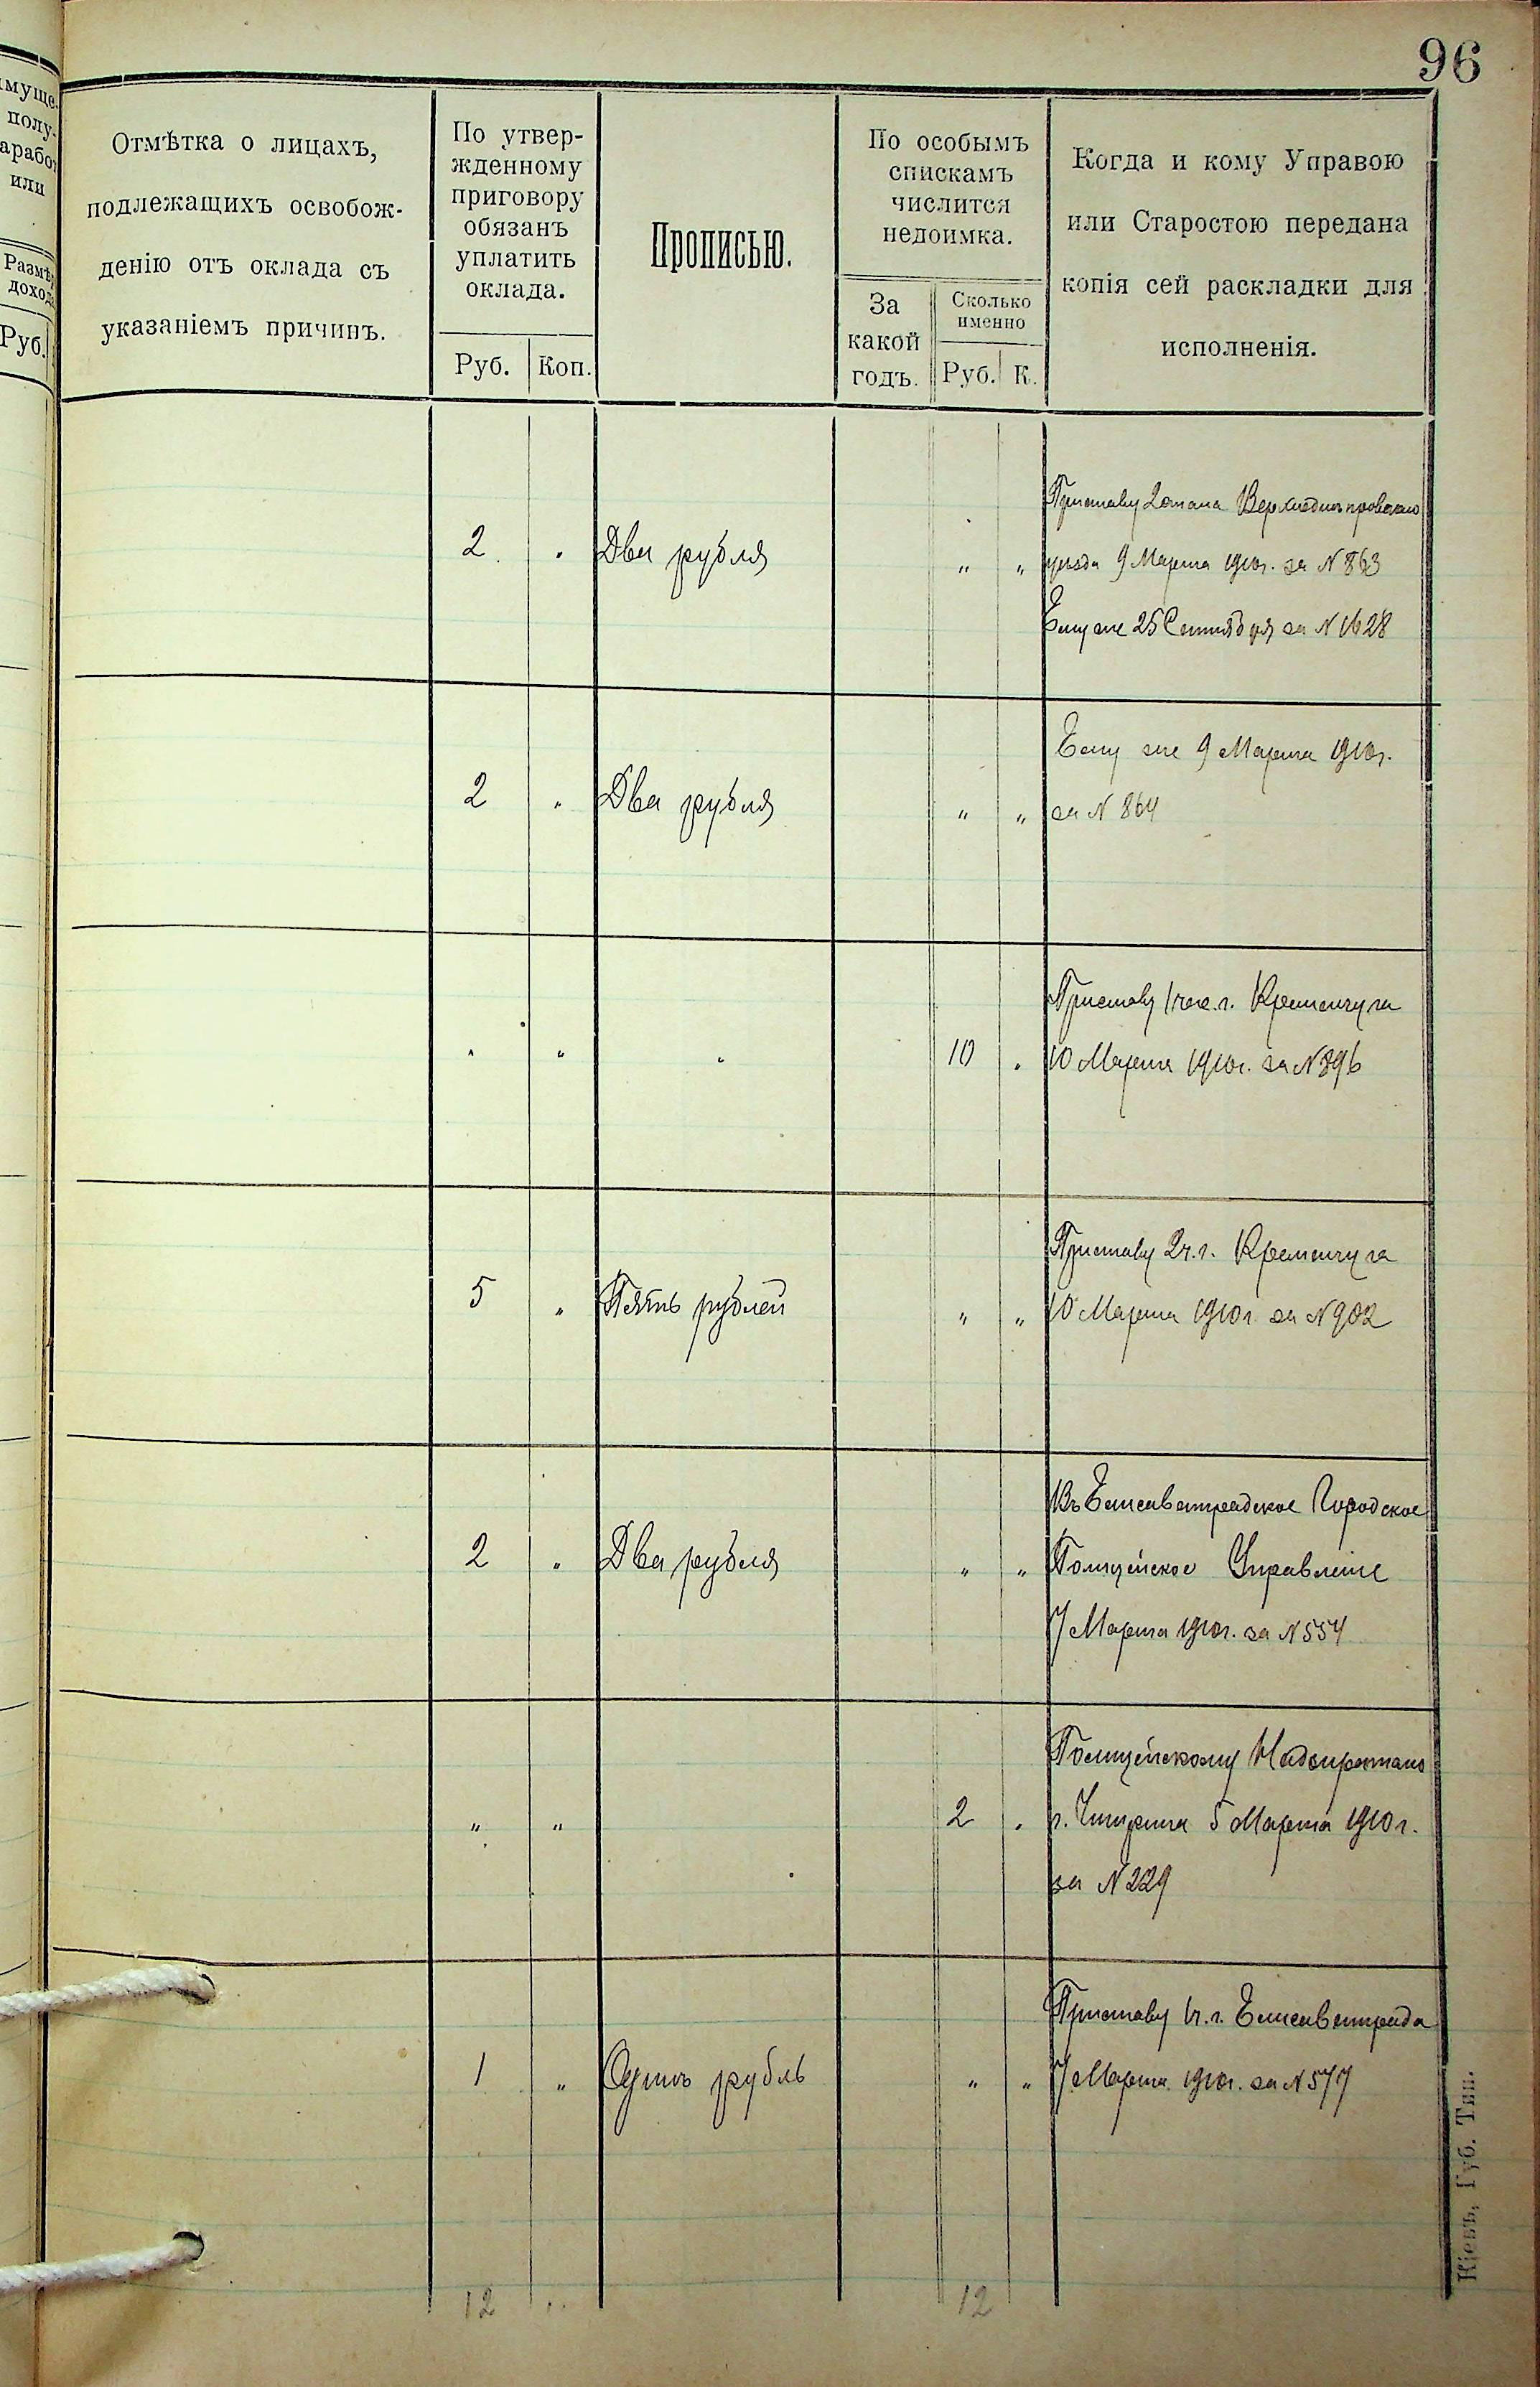 96
имуще-
полу-
арабо
или
Размѣ
доход
Руб.
Отмѣтка о лицахъ,
подлежащихъ освобож-
денію отъ оклада съ
указаніемъ причинъ.
По утвер-
жденному
приговору
обязанъ
уплатить
оклада.
Руб. Коп.
Прописью.
По особымъ
спискамъ
числится
недоимка.
За
какой
годъ.
Сколько
именно
Руб. К.
Когда и кому Управою
или Старостою передана
копія сей раскладки для
исполненія.
Приставу 2 стана Верхнеднѣпровскаго
2 . Два рубля " " уѣзда 9 Марта 1910г. за N 863
Ему же 25 Сентября за N 1628
Ему же 9 Марта 1910г.
2 " Два рубля " " за N 864
Приставу 1 час. г. Кременчуга
" " " 10 " 10 Марта 1910г. за N 896
Приставу 2 ч. г. Кременчуга
5 " Пять рублей " " 10 Марта 1910г. за N 902
Въ Елисаветградское Городское
2 " Два рубля " " Полицейское Управленіе
7 Марта 1910г. за N 554
Полицейскому Надзирателю
" " 2 " г. Чигирина 5 Марта 1910г.
за N 229
Приставу 1 ч. г. Елисаветграда
1 " Одинъ рубль " " 7 Марта 1910г. за N 577
12 " 12
Кіевъ, Губ. Тип.